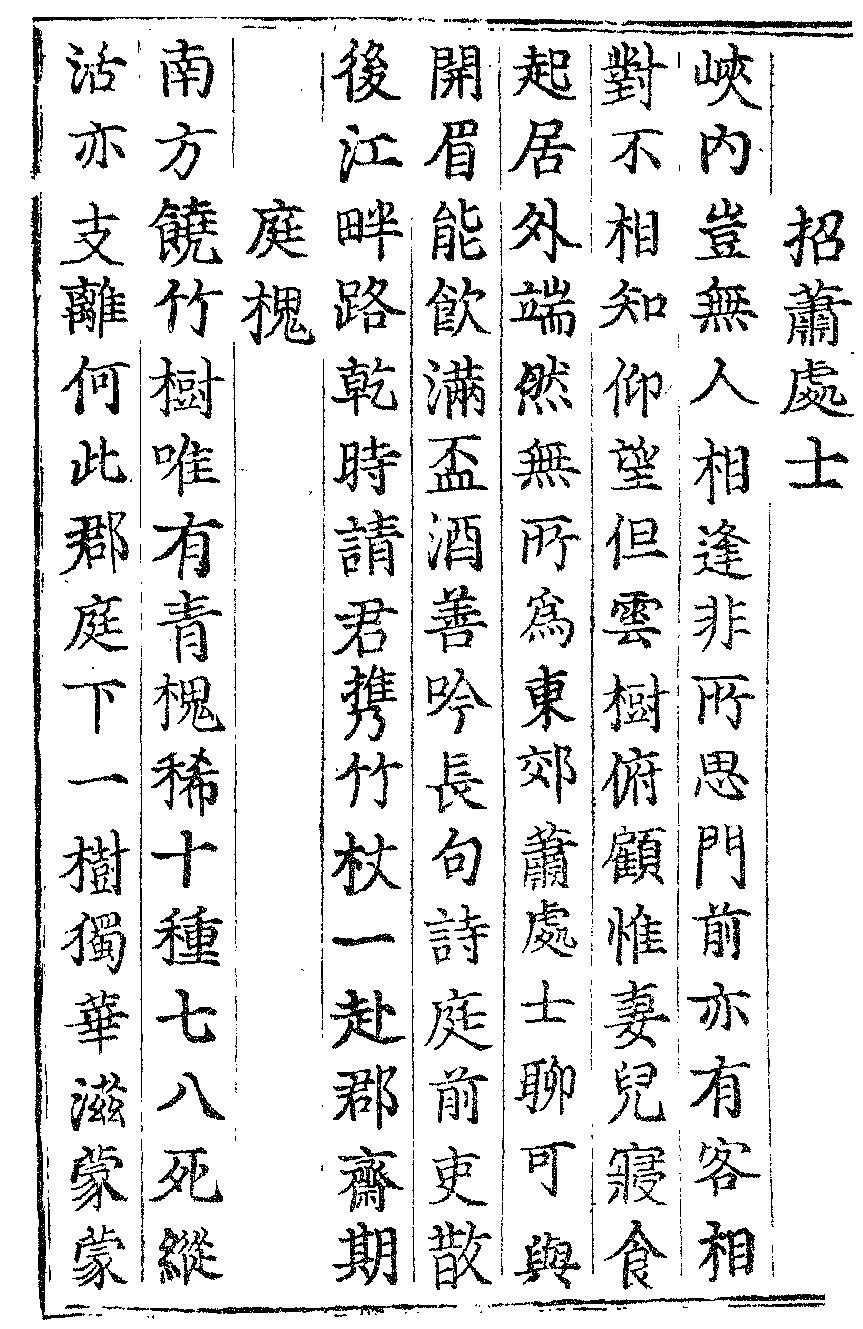 招蕭處士
峽内豈無人相逢非所思門前亦有客相
對不相知仰望但雲樹俯顧惟妻兒寢食
起居外端然無所爲東郊蕭處士聊可與
開眉能飲滿盃酒善吟長句詩庭前吏散
後江畔路乾時請君携竹杖一赴郡齋期
庭槐
南方饒竹樹唯有青槐稀十種七八死縱
活亦支離何此郡庭下一樹獨華滋蒙蒙